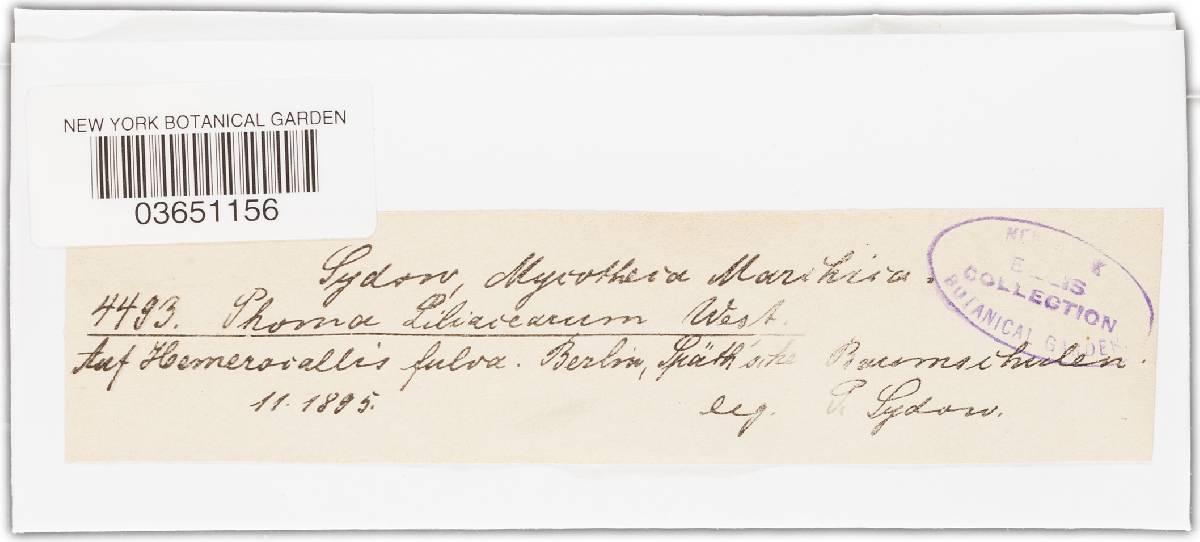 NEW YORK BOTANICAL GARDEN
03651156
Sydow, Mycotheca Marchica.
4493. Phoma Liliacearum West.
Auf Hemerocallis fulva. Berlin, Späth'sche Baumschulen.
11. 1895. leg. P. Sydow.
COLLECTION
BOTANICAL GARDEN